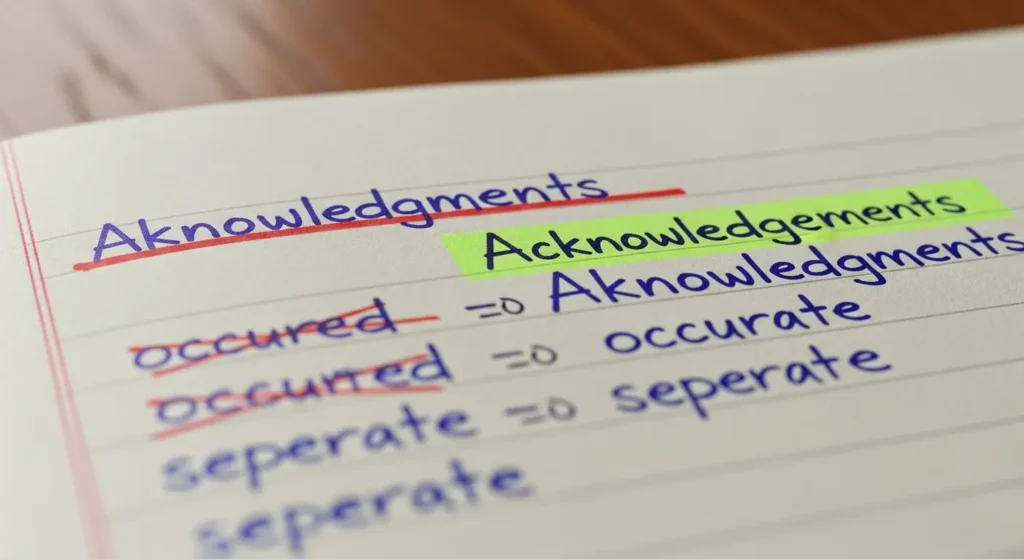 Aknowledgments
Acknowledgements
occured => Aknowledgments
occurred => occurate
seperate => seperate
seperate